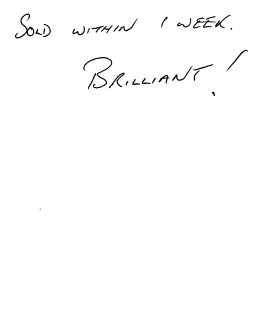 SOLD WITHIN 1 WEEK.
BRILLIANT!